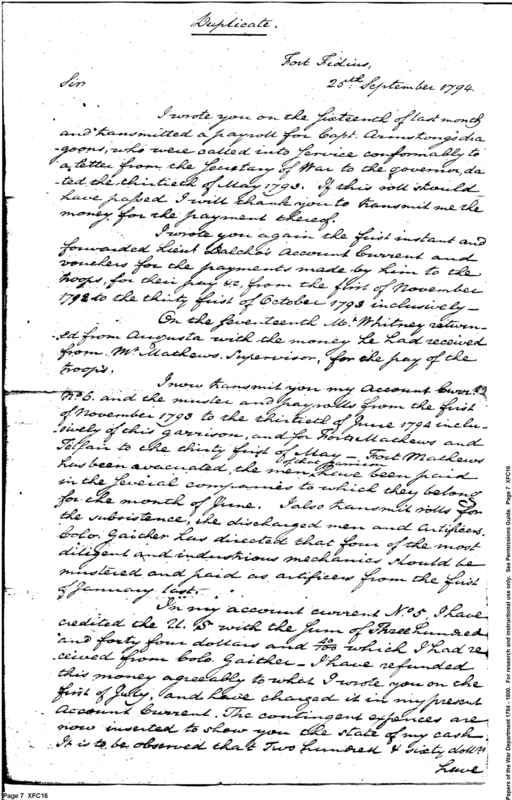 Duplicate.
Fort Fidius,
25th September 1794.
Sir
I wrote you on the sixteenth of last month
and transmitted a payroll for Capt. Armstrong's dra
-goons, who were called into service conformably to
a letter from the Secretary of War to the governor, da
-ted the thirtieth of May 1793. If this roll should
have passed I will thank you to transmit me the
money for the payment thereof.
I wrote you again the first instant and
forwarded Lieut Dalcho's Account Current and
vouchers for the payments made by him to the
troops, for their pay &c, from the first of November
1792 to the thirty first of October 1793 inclusively —
On the seventeenth Mr. Whitney return-
ed from Augusta with the money he had received
from Mr. Mathews, Supervisor, for the pay of the
troops.
I now transmit you my Account Curr.t
No 6. and the muster and payrolls from the first
of November 1793 to the thirtieth of June 1794 inclu-
sively of this garrison, and for Forts Mathews and
Telfair to the thirty first of May — Fort Mathews
of this garrison
has been evacuated, the men have been paid
in the several companies to which they belong
for the month of June. I also transmit rolls for
the subsistence, the discharged men and Artificers.
Colo. Gaither has directed that four of the most
diligent and industrious mechanics should be
mustered and paid as artificers from the first
of January last.
In my account current No 5 I have
credited the U. S with the sum of Three hundred
and forty four dollars and which I had re
ceived from Colo. Gaither — I have refunded
this money agreeably to what I wrote you on the
first of July, and have charged it in my present
Account Current. The contingent expences are
now inserted to show you the state of my cash.
It is to be observed that Two hundred & sixty doll.rs
have
Page 7 XFC16
Papers of the War Department 1784 - 1800. For research and instructional use only. See Permissions Guide. Page 7 XFC16